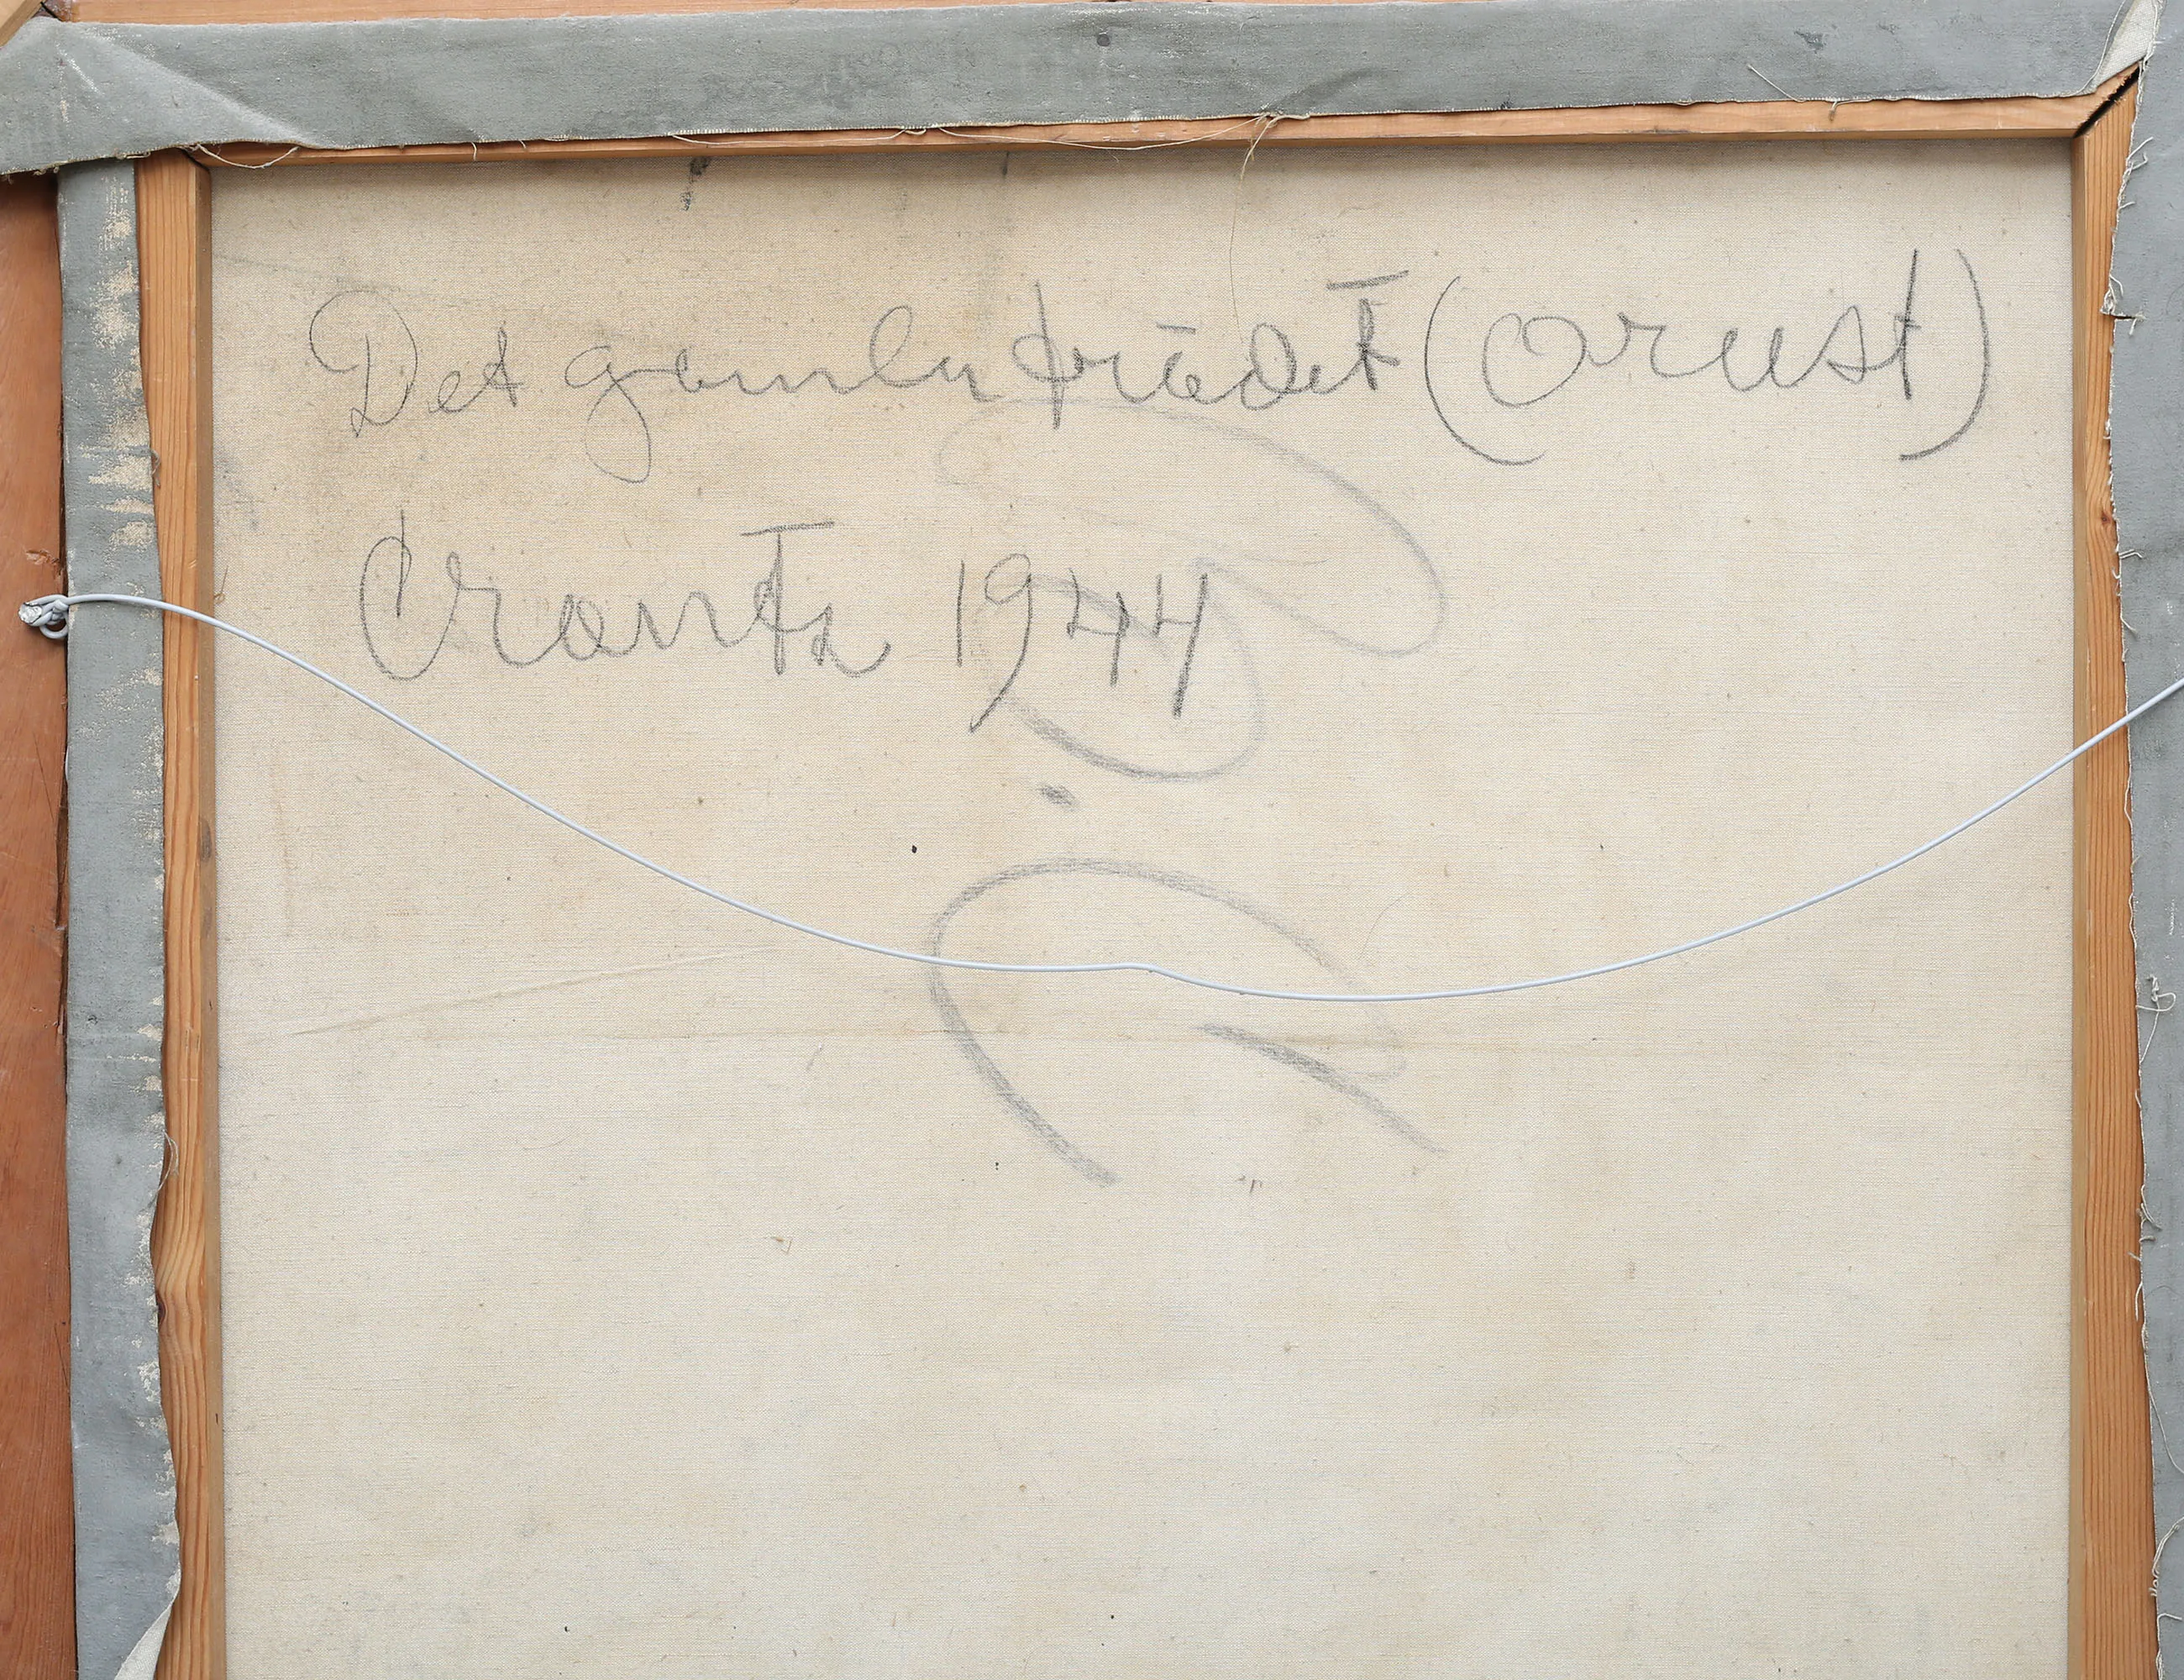 Det gamla trädet (Orust)
Crantz 1944